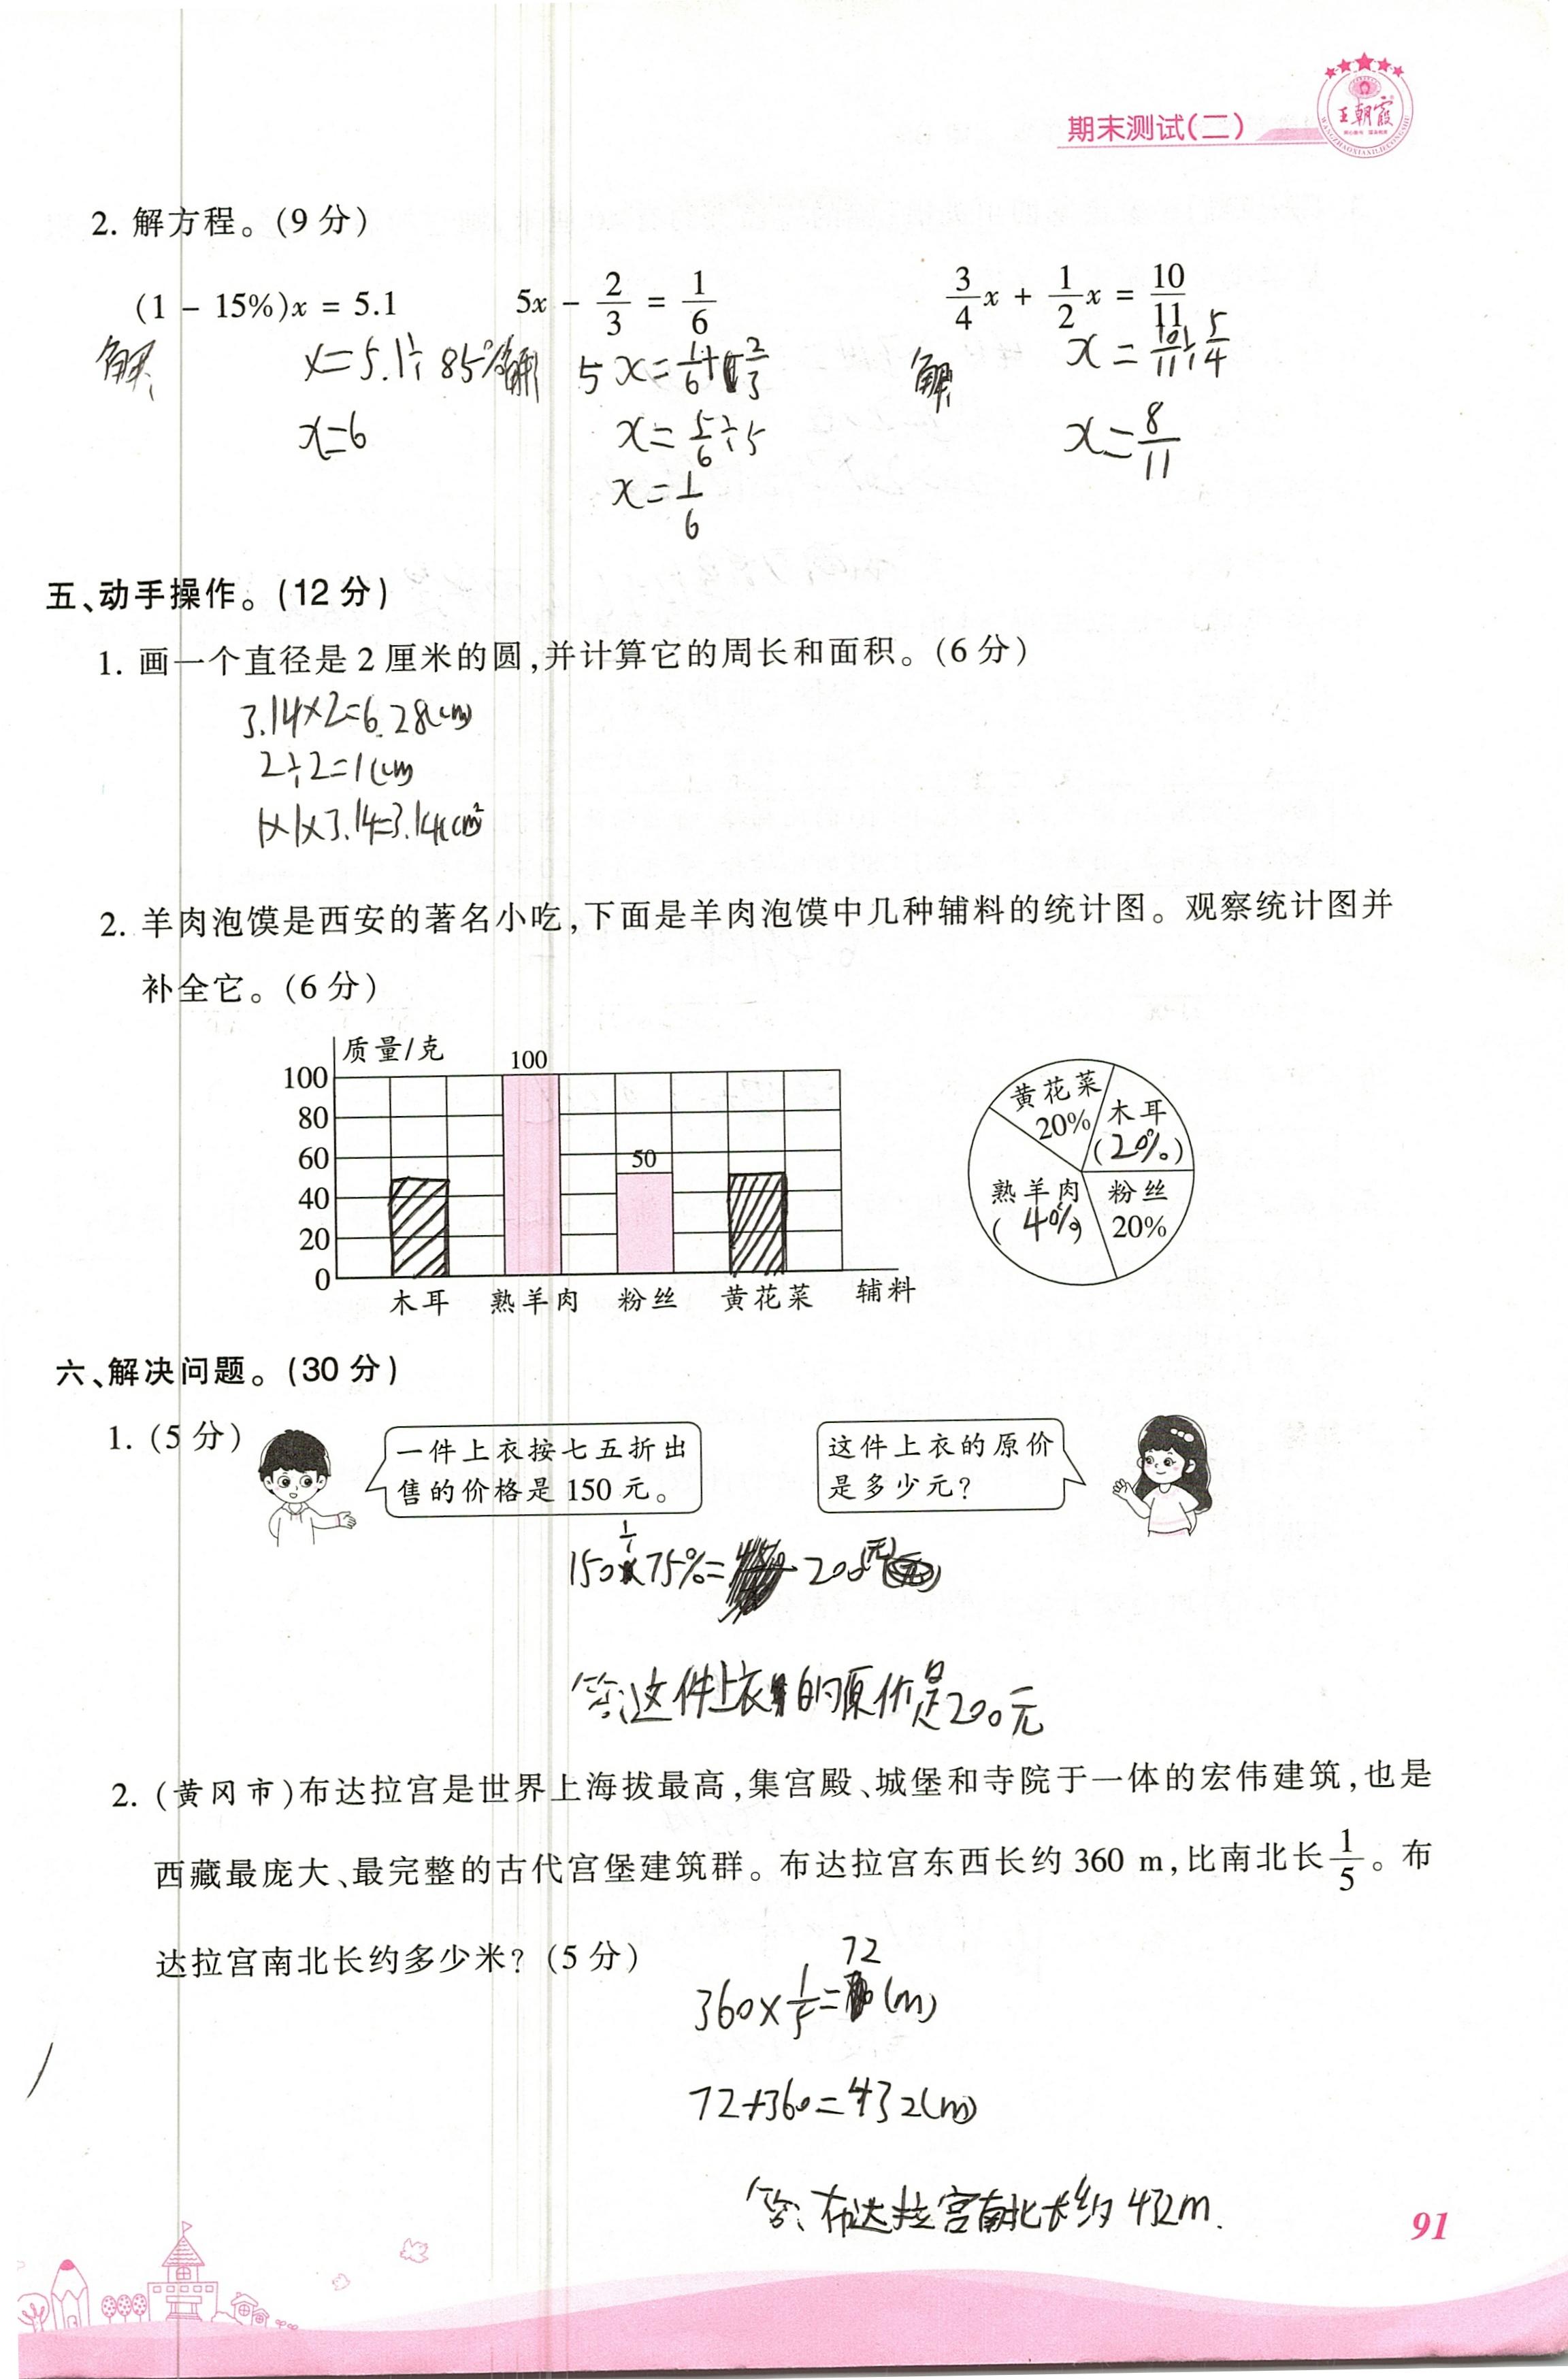 期末测试(二)
王朝霞
2. 解方程。(9 分)
(1 - 15%)x = 5.1 5x - 2/3 = 1/6 3/4x + 1/2x = 10/11
解: x=5.1÷85% 解: 5x=1/6+2/3 解: x=10/11÷5/4
x=6 x=5/6÷5 x=8/11
x=1/6
五、动手操作。(12 分)
1. 画一个直径是 2 厘米的圆,并计算它的周长和面积。(6 分)
3.14×2=6.28(cm)
2÷2=1(cm)
1×1×3.14=3.14(cm²
2. 羊肉泡馍是西安的著名小吃,下面是羊肉泡馍中几种辅料的统计图。观察统计图并
补全它。(6 分)
质量/克
100
100
80
60
50
40
20
0
木耳 熟羊肉 粉丝 黄花菜 辅料
黄花菜
20%
木耳
(20%)
熟羊肉
(40%)
粉丝
20%
六、解决问题。(30 分)
1. (5 分)
一件上衣按七五折出
售的价格是 150 元。
这件上衣的原价
是多少元?
150÷75%=200(元)
答:这件上衣的原价是200元
2. (黄冈市)布达拉宫是世界上海拔最高,集宫殿、城堡和寺院于一体的宏伟建筑,也是
西藏最庞大、最完整的古代宫堡建筑群。布达拉宫东西长约 360 m,比南北长1/5。布
达拉宫南北长约多少米?(5 分)
360×1/5=72(m)
72+360=432(m)
答:布达拉宫南北长约432m.
91